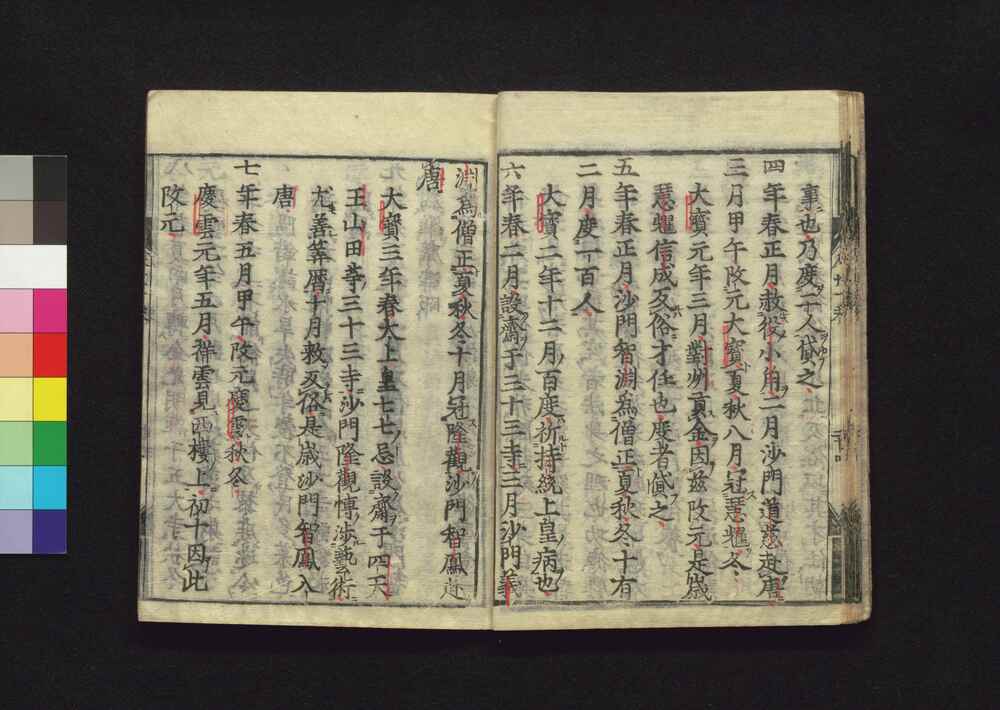 事也乃度一人償之
四年春正月赦役小角二月沙門道慈赴唐
三月甲午改元大寳夏秋八月冠慧耀冬
大寳元年三月對州貢金因兹改元是歳
慧耀信成反俗才任也度者償之
五年春正月沙門智淵爲僧正夏秋冬十有
二月度一百人
大寳二年十二月百度祈持統上皇病也
六年春二月設齋于三十三寺三月沙門義
淵爲僧正夏秋冬十月冠隆觀沙門智鳳赴
唐
大寳三年春太上皇七七忌設齋于四天
王山田等三十三寺沙門隆觀慱渉藝術
尤善筭曆十月敕反俗是歳沙門智鳳入
唐
七年春五月甲午改元慶雲秋冬
慶雲元年五月祥雲見西樓上初十因此
改元